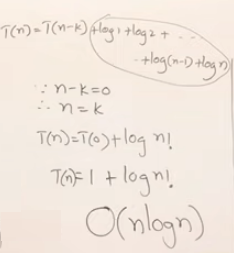 T(n)=T(n-k)+log1+log2+..
..+log(n-1)+logn
∵ n-k=0
∴ n=k
T(n)=T(0)+log n!
T(n)=1+logn!
O(nlogn)